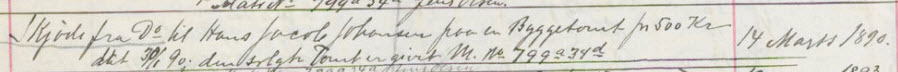 Skjøde fra Do til Hans Jacob Johansen paa en Byggetomt for 500 Kr
dat 30/1 90. den solgte Tomt er givet M. No. 799 a 34 d
14 Marts 1890.